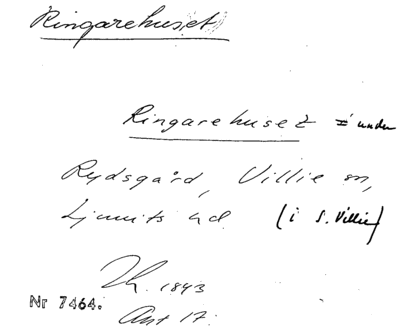 Ringarehuset
Ringarehuset i under
Rydsgård, Villie sn,
Ljunits hd. (i S. Villie)
1843
Nr 7464.
Ant 17.